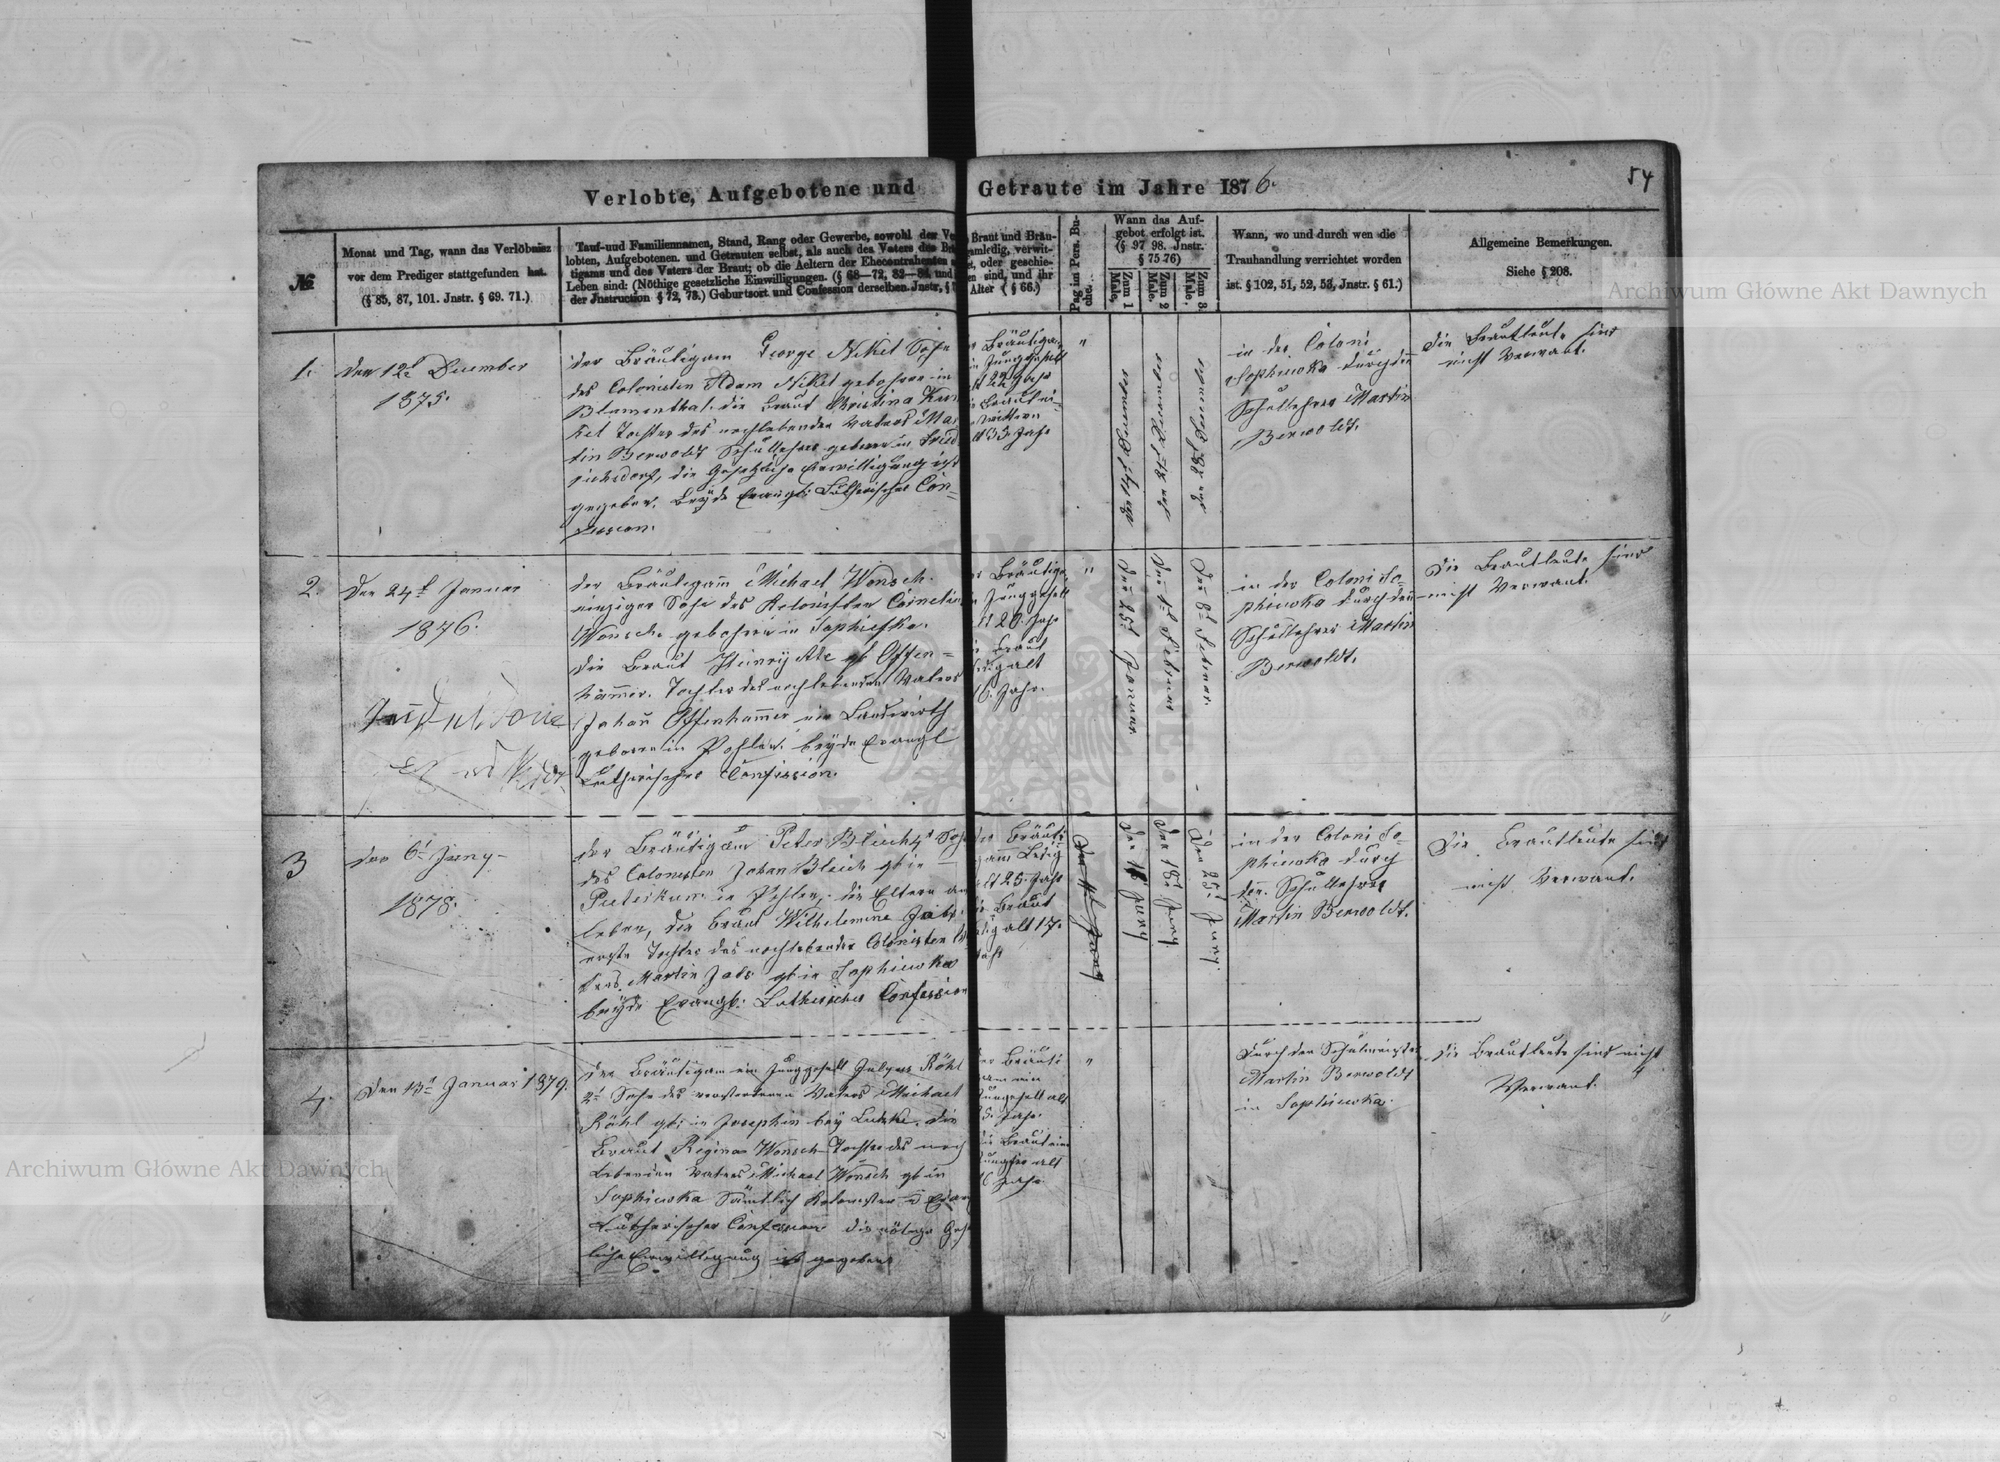 Verlobte, Aufgebotene und Getraute im Jahre 1876.
54
№
Monat und Tag, wann das Verlöbniss
vor dem Prediger stattgefunden hat.
(§ 85, 87, 101. Jnstr. § 69. 71.)
Tauf-und Familiennamen, Stand, Rang oder Gewerbe, sowohl der Ve
lobten, Aufgebotenen. und Getrauten selbst, als auch des Vaters des Br
tigams und des Vaters der Braut; ob die Aeltern der Ehecontrahenten
Leben sind: (Nöthige gesetzliche Einwilligungen. (§ 68—72, 82—84, und
der Jnstruction § 72, 78.) Geburtsort und Confession derselben. Jnstr, §
Braut und Bräu-
gamledig, verwit-
et, oder geschie-
en sind, und ihr
Alter ( § 66.)
Pag im Pers. Bu-
che.
Wann das Auf-
gebot erfolgt ist.
(§ 97 98. Jnstr.
§ 75 76)
Zum 1
Male,
Zum 2
Male.
Zum 3.
Male,
Wann, wo und durch wen die
Trauhandlung verrichtet worden
ist. § 102, 51, 52, 53, Jnstr. § 61.)
Allgemeine Bemerkungen.
Siehe § 208.
1.
Den 12t December
1875.
der Bräutigam George Nikel Sohn
des Colonisten Adam Nikel gebohren in
Blumenthal. die Braut Christina
kel Tochter des nochlebenden Vaters Mar
tin Berwoldt Schullehrer geboren in Fried
richsdorf, die Gesetzliche Einwilligung ist
gegeben. Beyde Evangl: Lutherischer Con=
fession.
r Bräutigam
n Junggesell
lt 22 Jahr
e Braut ei
Wittwe
lt 33 Jahr
"
in der Coloni
Sophiewka durch den
Schullehrer Martin
Berwoldt.
die Brautleute sind
nicht Verwant.
2.
Den 24t Januar
1876.
der Bräutigam Michael Wonsch.
einziger Sohn des Kolonisten
Wonsch. gebohren in Sophiefka.
die Braut Henryette gb Offen=
hammer. Tochter des nochlebenden Vaters
Johan Offenhammer ein Landwirth
geboren in Pohlen. beyde Evangl
Lutherischer Confession.
r Bräutiga
n Junggesell
lt 20. Jahr
e Braut
ledig alt
16. Jahr.
"
Den 25t Januar
Den 1t Februar
Den 8t Februar.
in der Coloni So=
phiewka durch den
Schullehrer Martin
Berwoldt.
Die Brautleute sind
nicht Verwant.
3
den 6t Juny
1878.
der Bräutigam Peter Bleich, Sohn
des Colonisten Johan Bleich gb in
in Pohlen, die Eltern am
leben, die Braut Wilhelmine Jabs
erste Tochter des nochlebenden Colonisten
Martin Jabs gb in Sophiewka
beyde Evangl: Lutherischer Confession
der Bräuti
gam Ledig
alt 25. Jahr
die Braut
ledig alt 17.
Jahr
Den 11 Juny
Den 18t Juny
Den 25t Juny.
in der Coloni So=
phiewka durch
den Schullehrer
Martin Berwoldt.
Die Brautleute sind
nicht Verwant.
4.
Den 13t Januar 1879.
der Bräutigam ein Junggesell Julyus Röhl
2t Sohn des verstorbenen Vaters Michael
Röhl gb: in Josephin bey Lutzke. die
Braut Regina Wonsch Tochter des noch
lebenden Vaters Michael Wonsch gb in
Sophiewka Sämtlich Kolonisten
Lutherischer Confession die nötige Gesetz
liche Einwilligung ist gegeben
der Bräuti
gam ein
Junggesell alt
Jahr.
die Braut eine
Jungfer alt
Jahr.
"
Durch den Schulmeister
Martin Berwoldt
in Sophiewka.
die Brautleute sind nicht
Verwant.
Archiwum Główne Akt Dawnych
Archiwum Główne Akt Dawnych